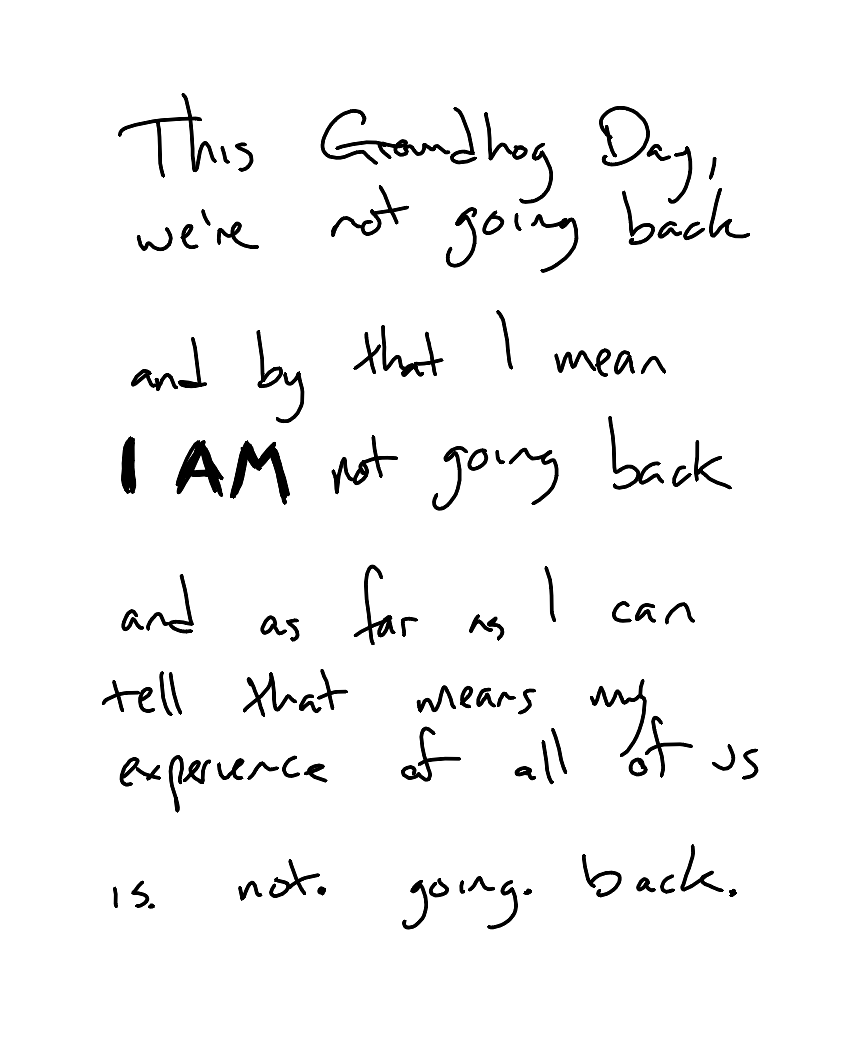 This Groundhog Day,
we're not going back
and by that I mean
I AM not going back
and as far as I can
tell that means my
experience of all of us
is. not. going. back.